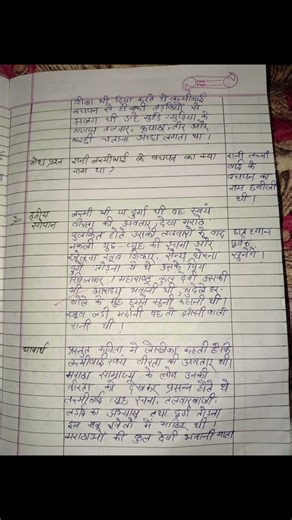 शिक्षा भी दिया करते थे लक्ष्मीबाई
बचपन से दूसरी लड़कियों से
अलग थी उन्हे गुड्डे-गुड़िया के
बजाय तलवार, कृपाण, तीर और
बरछी चलाना अच्छा लगता था।
बोध प्रश्न
रानी लक्ष्मीबाई के बचपन का क्या
नाम था ?
रानी लक्ष्मी
बाई के
बचपन का
नाम छबीली
थी।
3- तृतीय
सोपान
लक्ष्मी थी या दुर्गा थी वह स्वयं
वीरता की अवतार, देख मराठे
पुलकित होते उसकी तलवारों के वार
नकली युद्ध-व्यूह की रचना और
खेलना खूब शिकार, सैन्य घेरना
दुर्ग तोड़ना ये थे उसके प्रिय
खिलवार। महाराष्ट्र कुल देवी उसकी
भी आराध्य भवानी थी, बुंदेले हर-
बोलो के मुंह हमने सुनी कहानी थी।
खूब लड़ी मर्दानी वह तो झांसी वाली
रानी थी।
छात्र ध्यान-
पूर्वक
सुनेंगे।
भावार्थ
प्रस्तुत कविता में लेखिका कहती है कि
लक्ष्मीबाई स्वयं वीरता की अवतार थी।
मराठा साम्राज्य के लोग उनकी
वीरता को देखकर प्रसन्न होते थे
लक्ष्मीबाई व्यूह रचना, तलवारबाजी
लड़ाई का अभ्यास तथा दुर्ग तोड़ना
इन सब खेलों में माहिर थी।
मराठाओं की कुल देवी भवानी माता